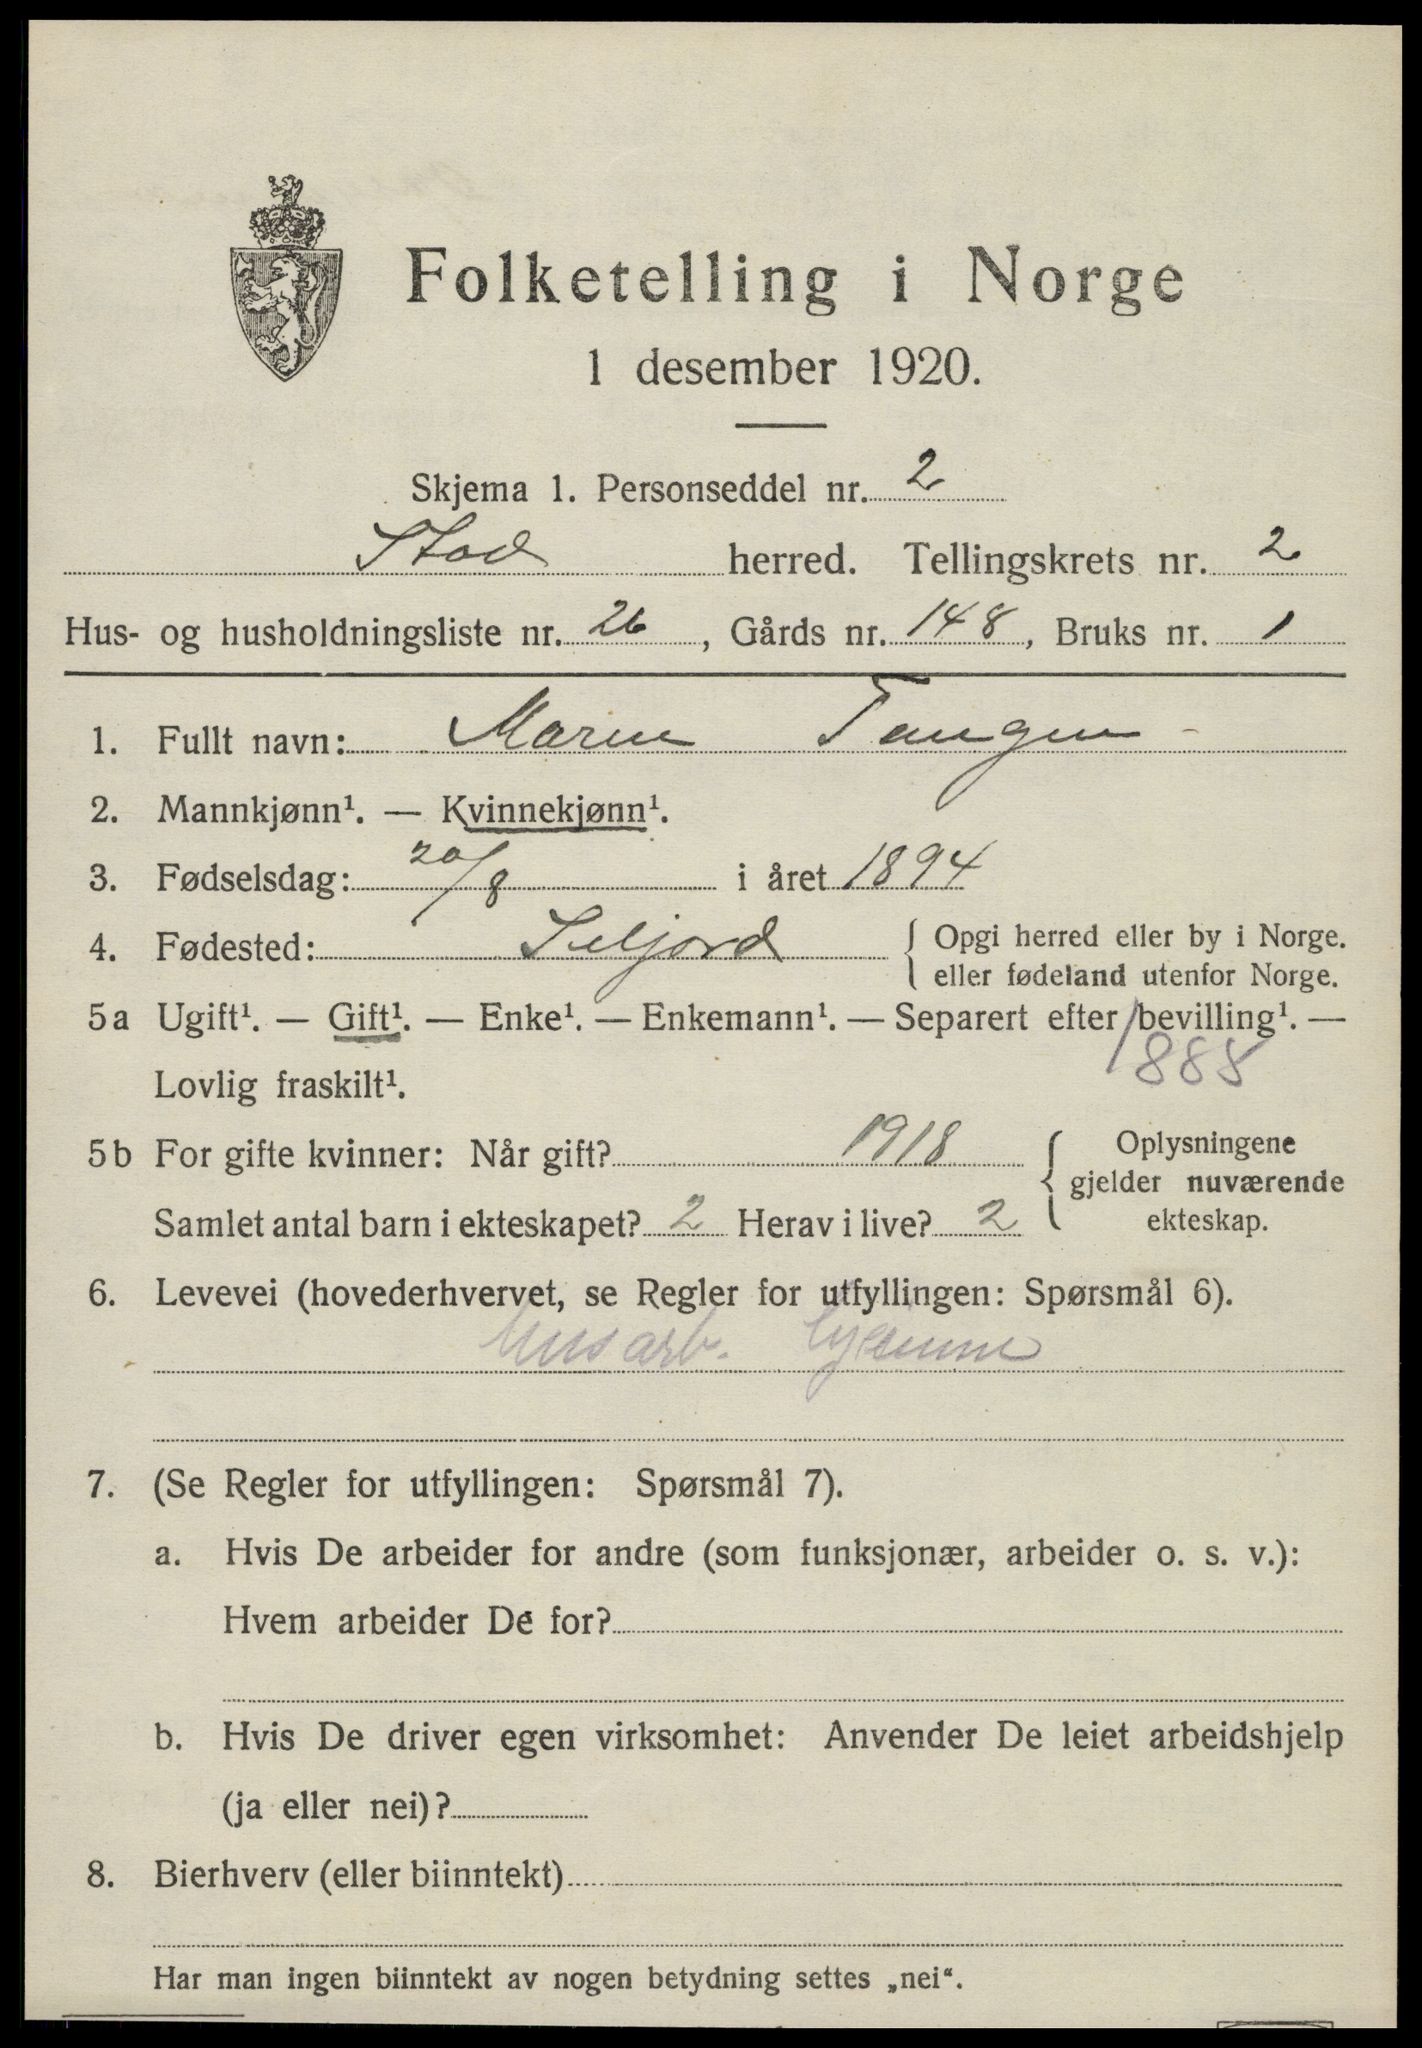 Folketelling i Norge
1 desember 1920.
Skjema 1. Personseddel nr. 2
Stod herred. Tellingskrets nr. 2
Hus- og husholdningsliste nr. 26, Gårds nr. 148, Bruks nr. 1
1. Fullt navn: Maren Tangen
2. Mannkjønn¹. — Kvinnekjønn¹.
3. Fødselsdag: 20/8 i året 1894
4. Fødested: Seljord { Opgi herred eller by i Norge.
eller fødeland utenfor Norge.
5a Ugift¹. — Gift¹. — Enke¹. — Enkemann¹. — Separert efter bevilling¹. —
1888
Lovlig fraskilt¹.
5b For gifte kvinner: Når gift? 1918 { Oplysningene
gjelder nuværende
ekteskap.
Samlet antal barn i ekteskapet? 2 Herav i live? 2
6. Levevei (hovederhvervet, se Regler for utfyllingen: Spørsmål 6).
husarb. hjemme
7. (Se Regler for utfyllingen: Spørsmål 7).
a. Hvis De arbeider for andre (som funksjonær, arbeider o. s. v.):
Hvem arbeider De for?
b. Hvis De driver egen virksomhet: Anvender De leiet arbeidshjelp
(ja eller nei)?
8. Bierhverv (eller biinntekt)
Har man ingen biinntekt av nogen betydning settes „nei“.